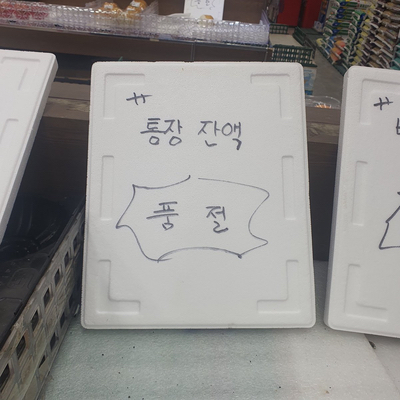 #
통장 잔액
품 절
#